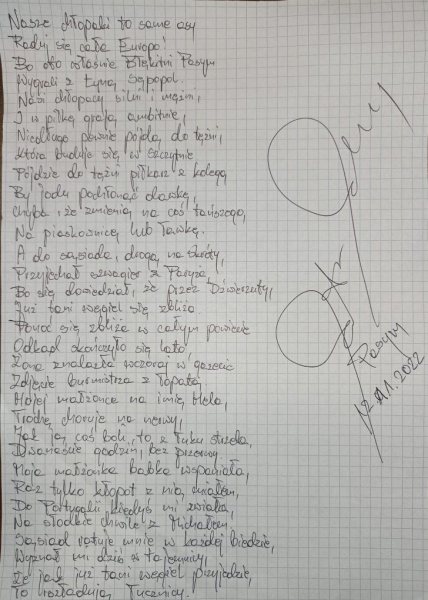 Nasze chłopaki to same asy
Raduj się cała Europo!
Bo oto właśnie Błękitni Pasym
Wygrali z Łyną Sępopol.
Nasi chłopacy silni i mężni,
I w piłkę grają ambitnie,
Niedługo pewnie pójdą do tężni,
Która buduje się w Szczytnie
Pójdzie do tężni piłkarz z kolegą
By jodu podłonąć dawkę,
Chyba że zmienią na coś tańszego,
Na piaskownicę lub ławkę.
A do sąsiada, drogą na skróty,
Przyjechał szwagier z Paryża,
Bo się dowiedział, że przez Dźwierzuty,
Już tani węgiel się zbliża.
Ponoć się zbliża w całym powiecie
Odkąd skończyło się lato,
Żona znalazła wczoraj w gazecie
Zdjęcie burmistrza z łopatą,
Mojej małżonce na imię Hela,
Trochę choruje na nerwy,
Jak ją coś boli, to z łuku strzela,
Dwanaście godzin, bez przerwy,
Moja małżonka babka wspaniała,
Raz tylko kłopot z nią miałem,
Do Portugalii kiedyś mi zwiała,
Na słodkie chwile z Michałem,
Sąsiad ratuje mnie w każdej biedzie,
Wyznał mi dziś w tajemnicy,
Że jak już tani węgiel przyjedzie,
To rozładują Tucznicy.
Pasym
12.11.2022